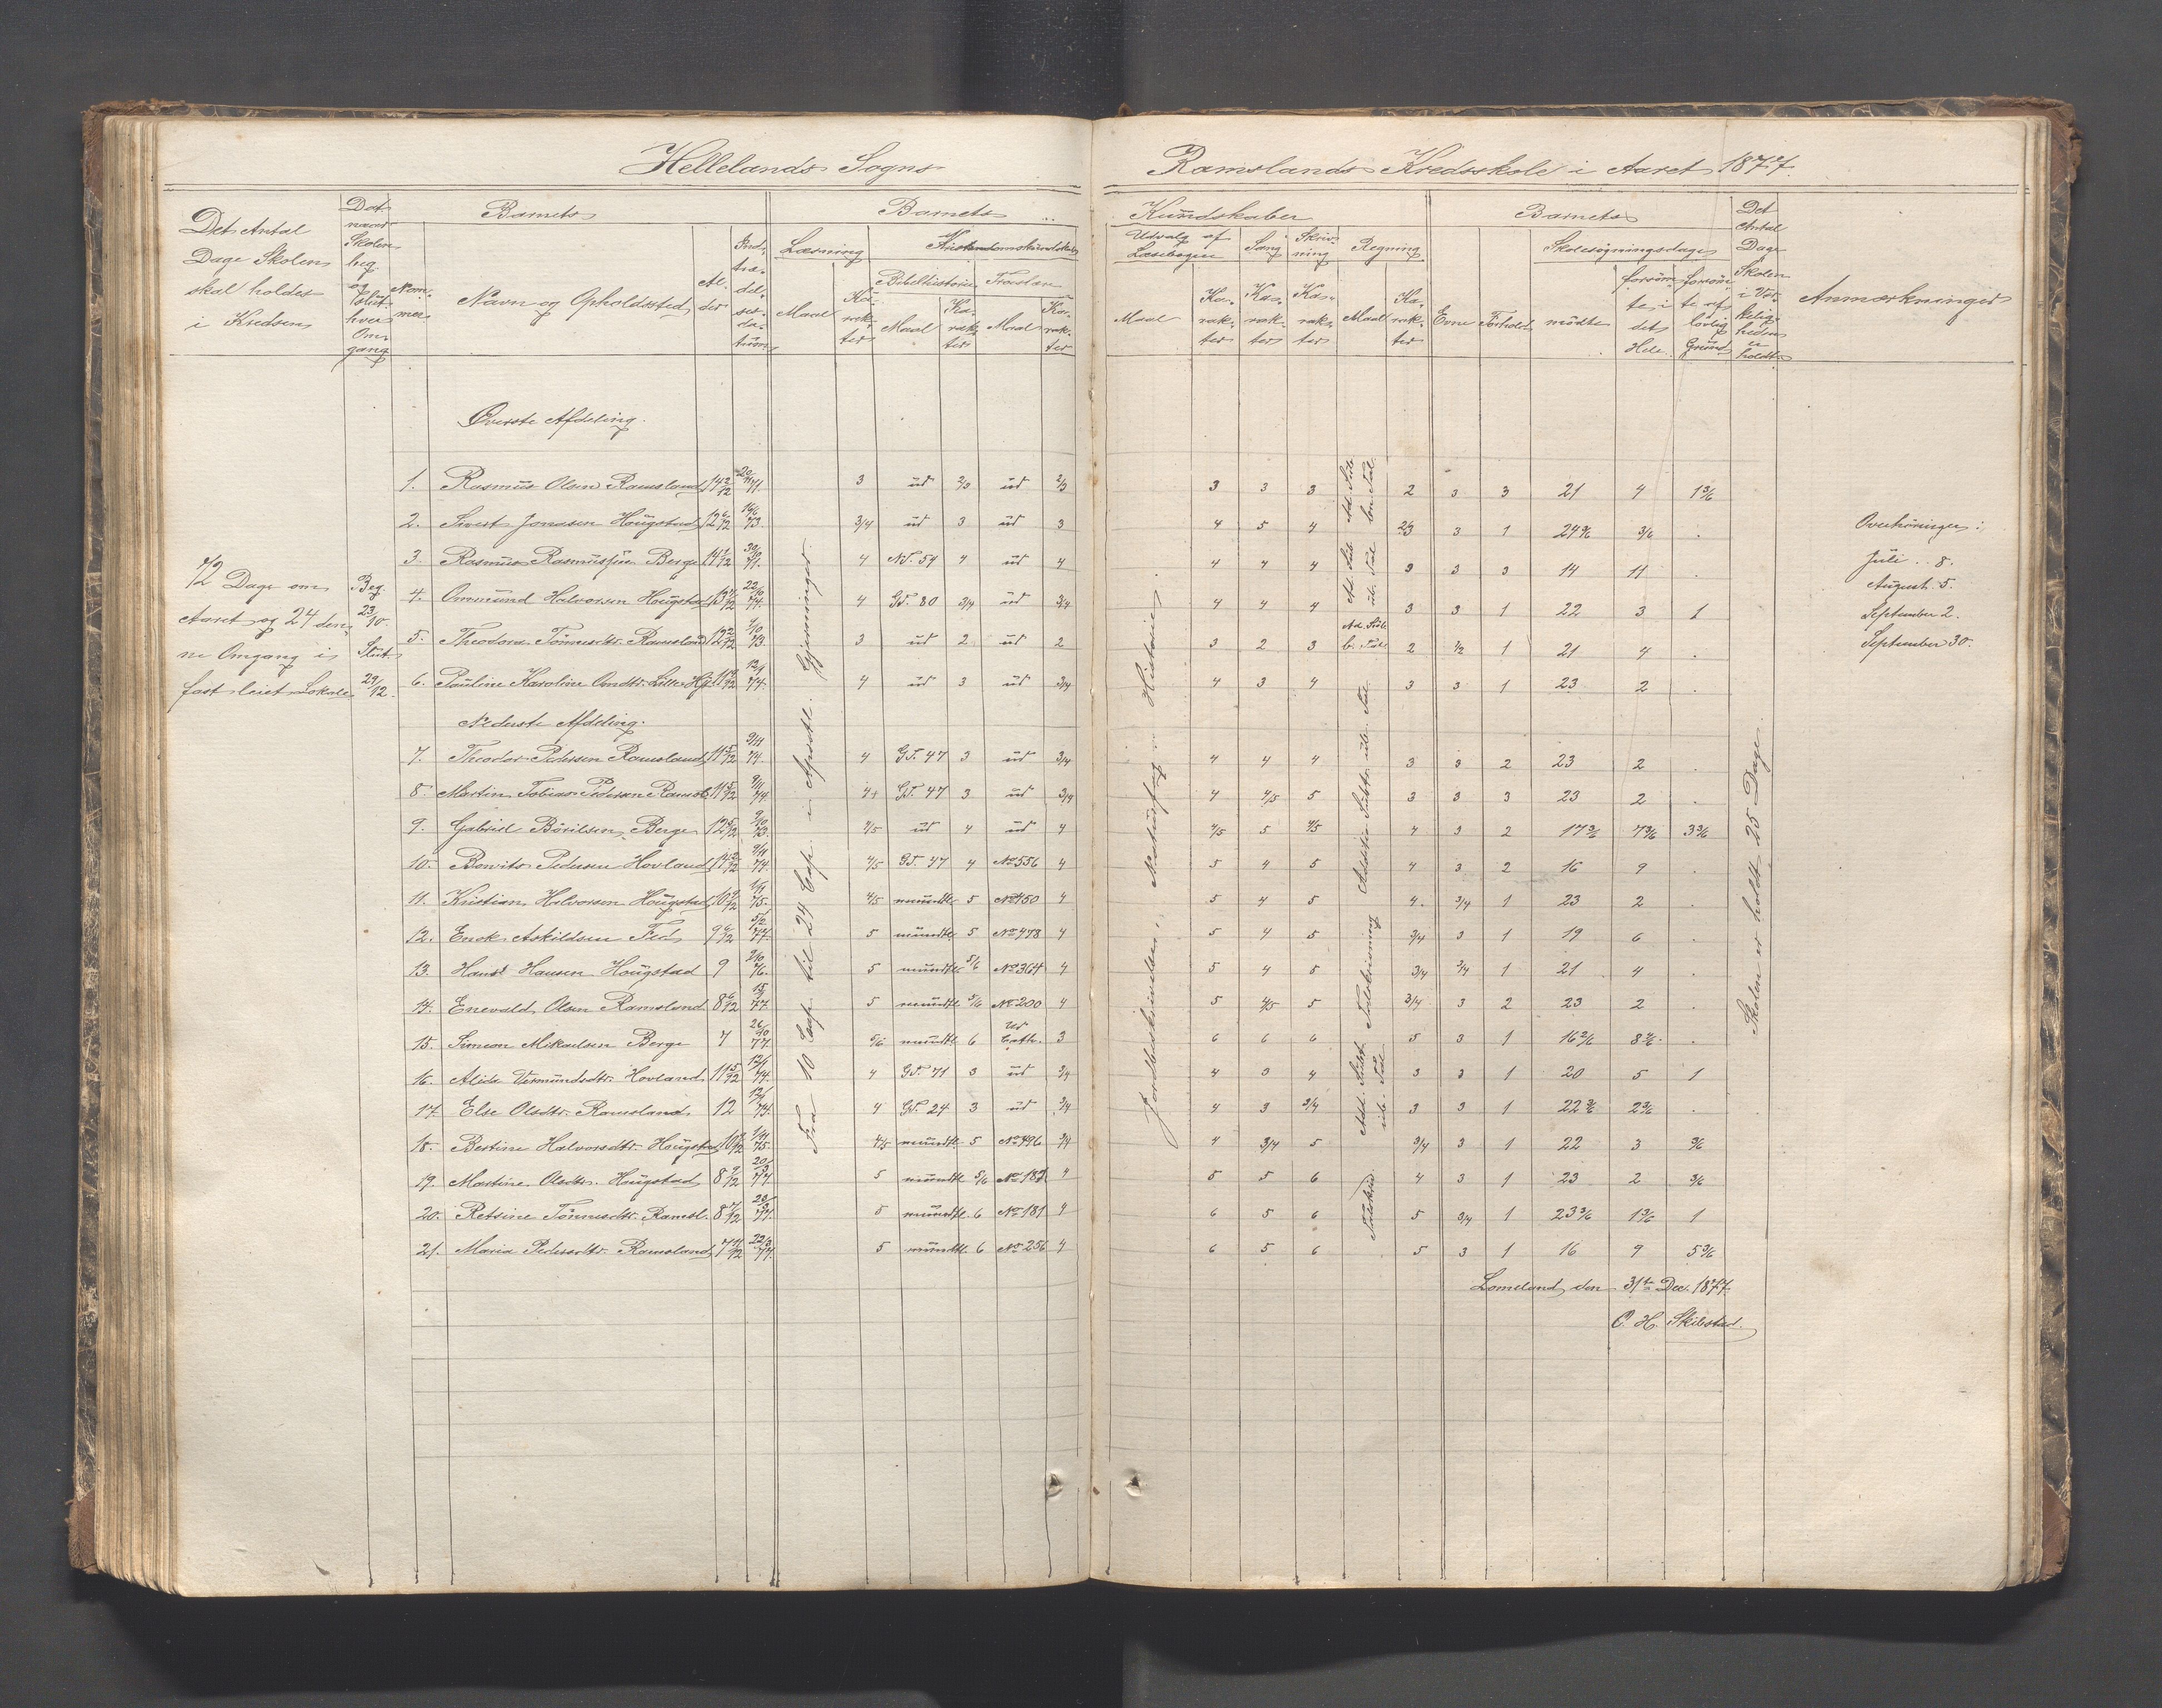 Hellelands Sogns Ramslands Kredsskole i Aaret 1877.
Det Antal Dage Skolen skal holdes i Kredsen
Dat. naar Skolen beg. og slut. hver Omgang
Barnets
Nummer
Navn og Opholdssted
Alder
Indtrædelsesdatum
Barnets
Læsning
Maal
Karakter
Kristendomskundskab
Bibelhistorie
Maal
Karakter
Forklare
Maal
Karakter
Kundskaber
Udvalg af Læsebogen
Maal
Karakter
Sang
Karakter
Skrivning
Karakter
Regning
Maal
Karakter
Barnets
Evne
Forhold
Skolesøgningsdage
mødte
forsømte i det Hele
forsømte af lovlig Grund
Det Antal Dage Skolen i Virkeligheden er holdt
Anmærkninger
Øverste Afdeling.
1. Rasmus Olsen Ramsland 14 2/12 20/11 71. 3 ud 2/3 ud 2/3 3 3 3 2 3 3 21 4 1 3/6
2. Sivert Jonasen Hougstad 12 6/12 16/6 73. 3/4 ud 3 ud 3 4 5 4 2/3 3 1 24 3/6 3/6 .
3. Rasmus Rasmussen Berge 14 1/12 71. 4 NT. 54 4 ud 4 4 4 4 3 3 3 14 11 .
4. Ommund Halvorsen Hougstad 22/10 74. 4 GT. 80 3/4 ud 3/4 4 4 4 3 3 1 22 3 1
5. Theodora Tønnesdtr. Ramsland 12 2/12 73. 3 ud 2 ud 2 3 2 3 2 1/2 1 21 4 .
6. Pauline Karoline Omdtr. Lille H. 12/1 74. 4 ud 3 ud 3/4 4 3 4 3 3 1 23 2 .
Nederste Afdeling.
7. Theodor Pedersen Ramsland 11 5/12 9/11 74. 4 GT. 47 3 ud 3/4 4 4 4 3 3 2 23 2 .
8. Martin Tobias Pedersen Ramsl. 11 5/12 9/11 74. 4+ GT. 47 3 ud 3/4 4 4/5 5 3 3 3 23 2 .
9. Gabriel Børilsen Berge 12 5/12 73. 4/5 ud 4 ud 4 4/5 5 4/5 4 3 2 17 3/6 7 3/6 3 3/6
10. Bowits Pedersen Hovland 9/11 74. 4/5 GT. 47 4 No 556 4 5 4 5 4 3 2 16 9 .
11. Kristian Halvorsen Hougstad 10 9/12 1/11 75. 4/5 mundtl. 5 No 450 4 5 4 5 4. 3/4 1 23 2 .
12. Enok Askildsen Fed 9 6/12 5/2 77. 5 mundtl. 5 No 478 4 5 4 5 3/4 3 1 19 6 .
13. Hans Hansen Hougstad 9 2/10 76. 5 mundtl. 5/6 No 364 4 5 4 5 3/4 3/4 1 21 4 .
14. Enevald Olsen Ramsland 8 6/12 77. 5 mundtl. 5/6 No 200 4 5 4/5 5 3/4 3 2 23 2 .
15. Simeon Mikaelsen Berge 7 26/10 77. 5/6 mundtl. 6 Ud Cath. 3 6 6 6 5 3 1 16 2/6 8 4/6 .
16. Alida Vermundsdtr. Hovland 11 5/12 12/1 74. 4 GT. 71 3 ud 3/4 4 3 4 3 3 1 20 5 1
17. Else Olsdtr. Ramsland 12 12/1 74. 4 GT. 24 3 ud 3/4 4 3 3/4 3 3 1 22 3/6 2 3/6 .
18. Bertine Halvorsdtr. Hougstad 1/11 75. 4/5 mundtl. 5 No 496 3/4 4 3/4 5 3/4 3 1 22 3 3/6
19. Martine Olsdtr. Hougstad 8 9/12 20/3 77. 5 mundtl. 5/6 No 182 4 5 5 6 4 3 1 23 2 3/6
20. Retsine Tønnesdtr. Ramsl. 8 77. 5 mundtl. 6 No 181 4 6 5 6 5 3/4 1 23 3/6 1 3/6 1
21. Maria Pedersdtr. Ramsland 7 11/12 22/3 77. 5 mundtl. 6 No 256 4 6 5 6 5 3 1 16 9 5 3/6
72 Dage om Aaret og 24 denne Omgang i fast leiet Lokale
Beg. 23/10.
Slut. 29/12.
Fra 10 Cap. til 24 Cap. i Apostl. Gjerninger.
Jordbeskrivelse, Naturfag Historie.
Talskrivning
Talskriv.
Skolen er holdt 25 Dage.
Overhøringer:
Juli .. 8.
August 5.
September 2.
September 30.
Lomeland, den 31te Dec. 1877.
O. H. Skibstad.